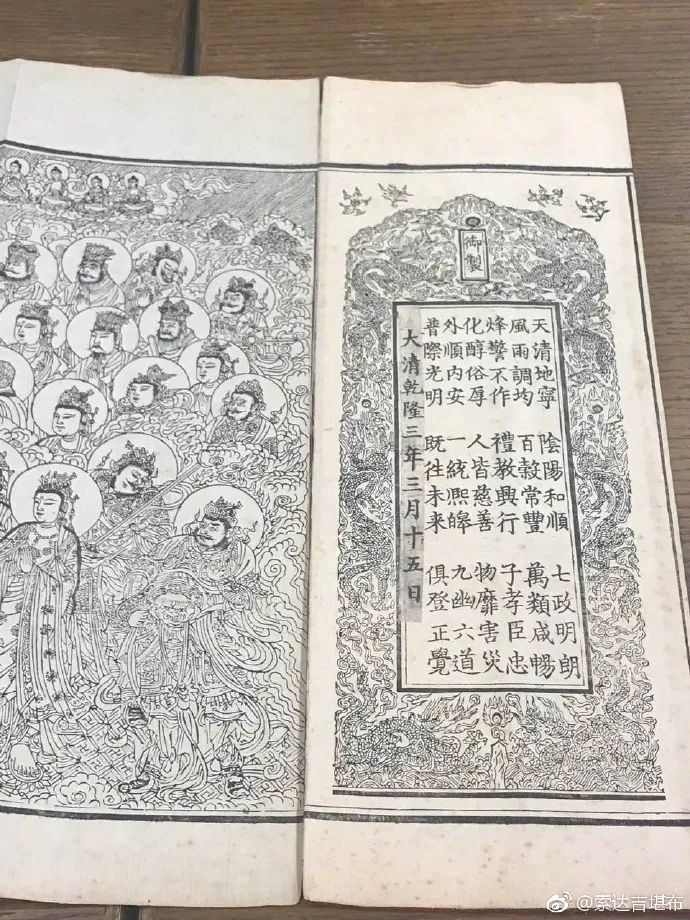 御製
天清地寧 陰陽和順 七政明朗
風雨調均 百穀常豐 萬類咸暢
烽警不作 禮教興行 子孝臣忠
化醇俗厚 人皆慈善 物靡害災
外順內安 一統熙皞 九幽六道
普際光明 既往未來 俱登正覺
大清乾隆三年三月十五日
@索达吉堪布